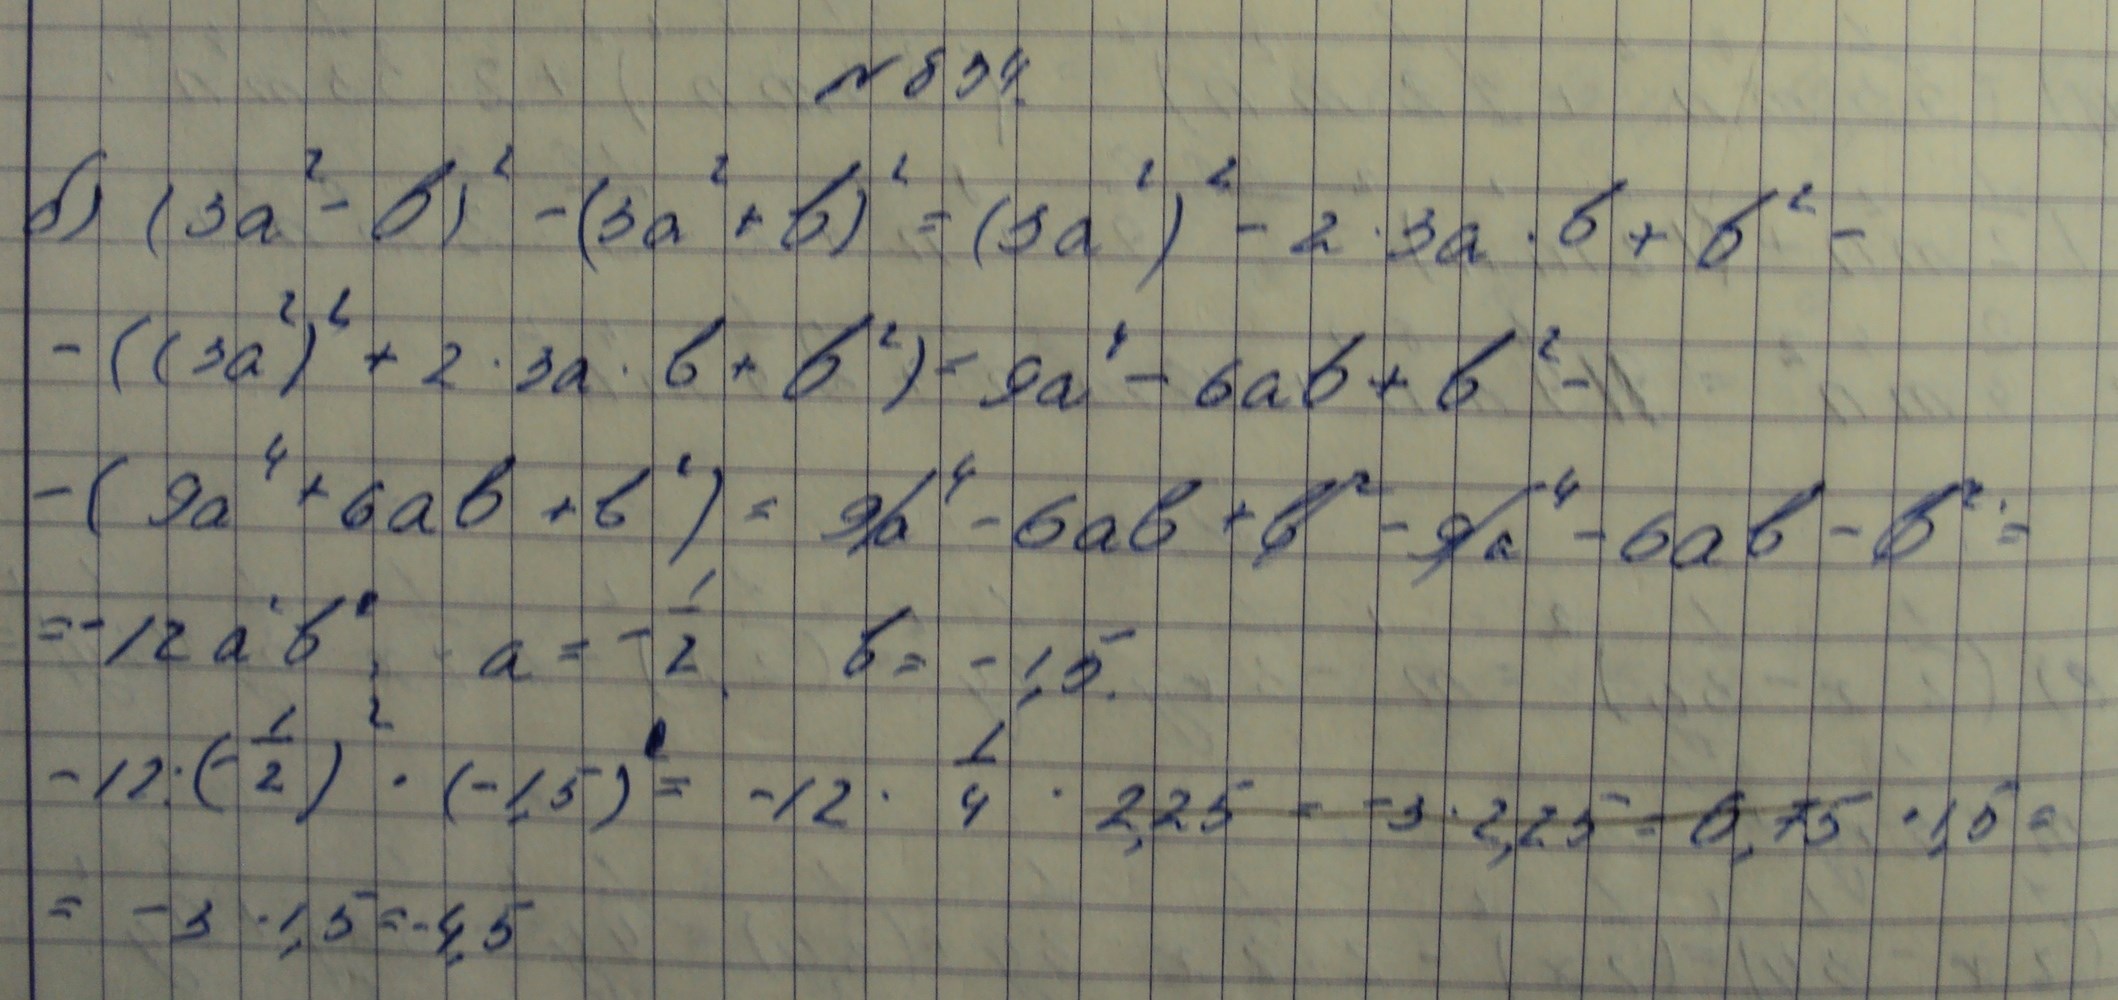 № 834
б) (3a² - b)² - (3a² + b)² = (3a²)² - 2 · 3a · b + b² -
- ((3a²)² + 2 · 3a · b + b²) = 9a⁴ - 6ab + b² -
- (9a⁴ + 6ab + b²) = 9a⁴ - 6ab + b² - 9a⁴ - 6ab - b² =
= -12a²b, a = -1/2, b = -1,5.
-12 · (-1/2)² · (-1,5) = -12 · 1/4 · 2,25 = -3 · 2,25 = 6,75 · 1,5 =
= -3 · 1,5 = -4,5